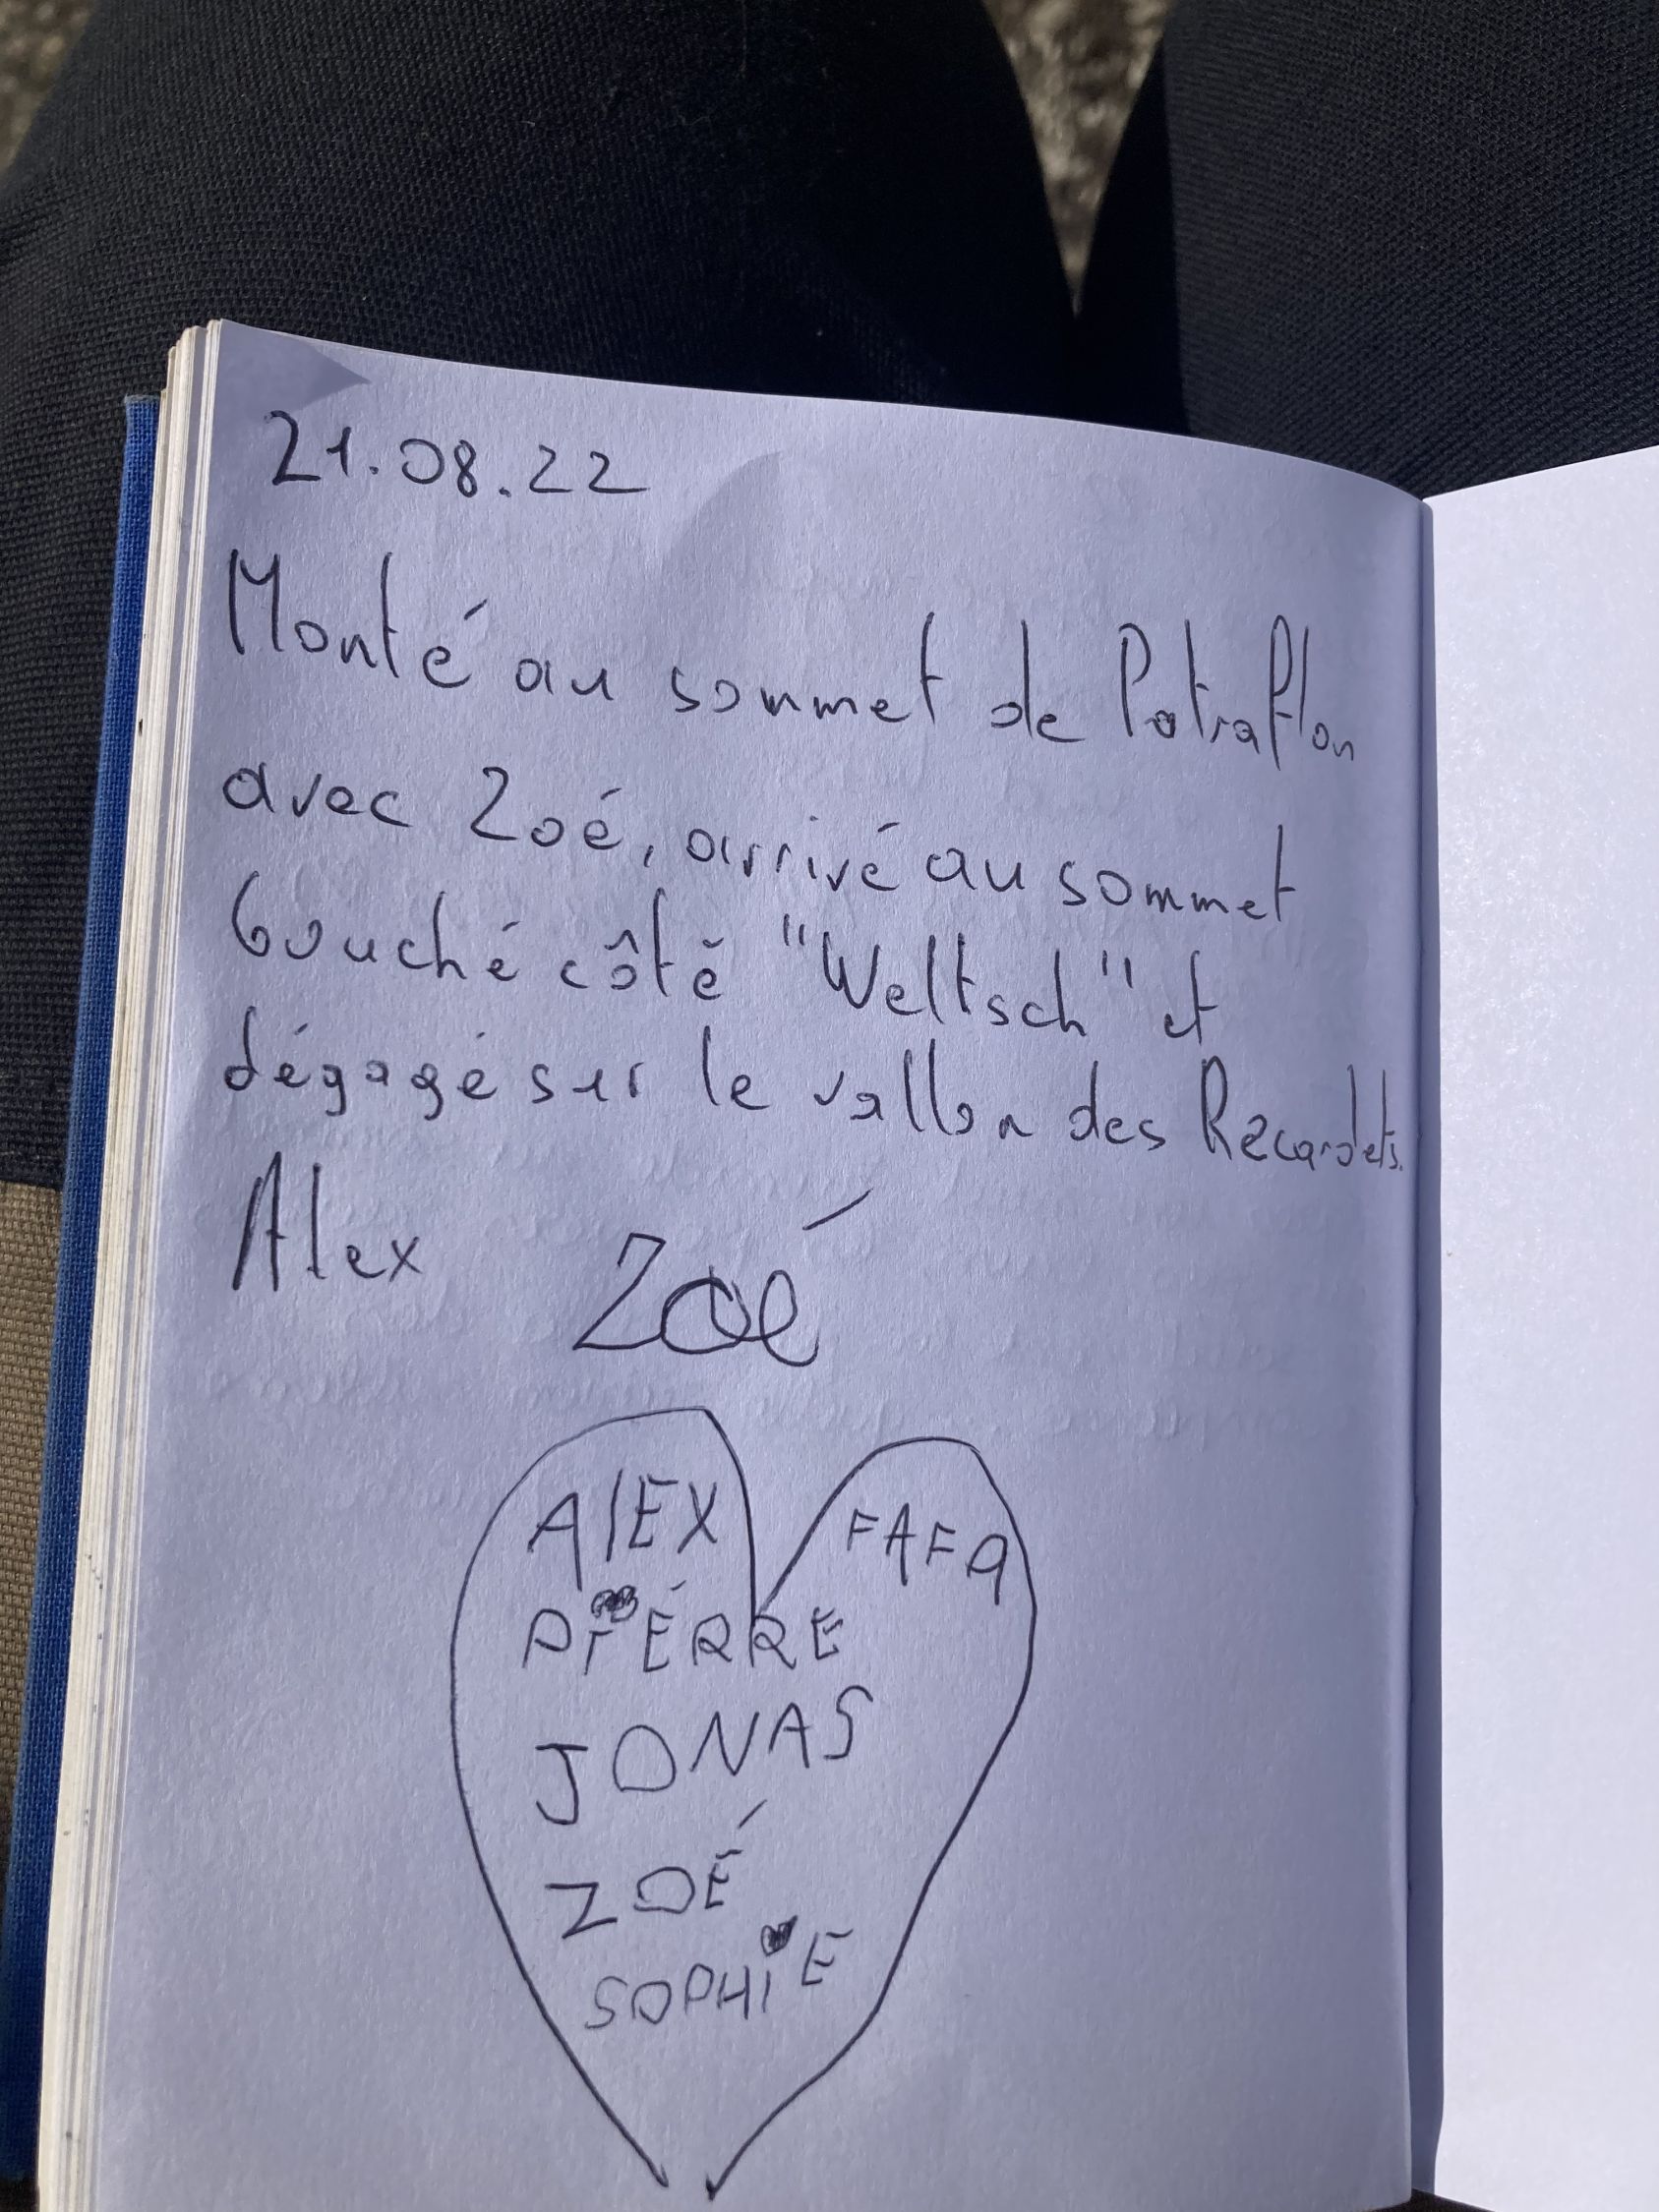 21.08.22
Monté au sommet de Patraflon
avec Zoé, arrivé au sommet
bouché côté "Weltsch" et
dégagé sur le vallon des Recardets.
Alex Zoé
AlEX FAFA
PIÉRRE
JONAS
ZOÉ
SOPHiE